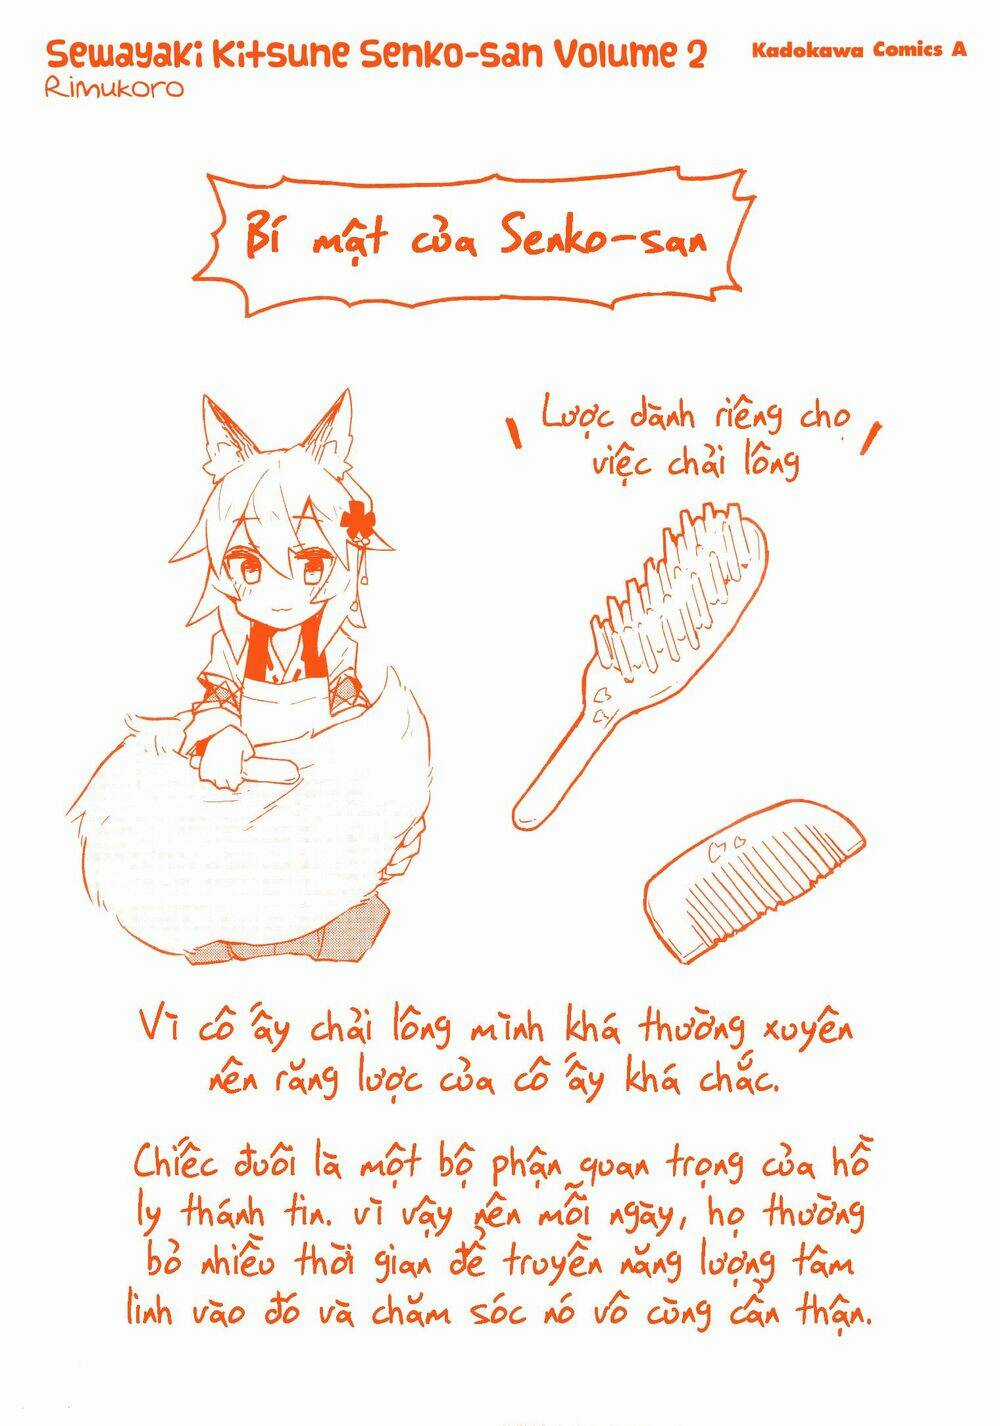 Sewayaki Kitsune Senko-san Volume 2
Kadokawa Comics A
Rimukoro
Bí mật của Senko-san
Lược dành riêng cho
việc chải lông
Vì cô ấy chải lông mình khá thường xuyên
nên răng lược của cô ấy khá chắc.
Chiếc đuôi là một bộ phận quan trọng của hồ
ly thánh tin. vì vậy nên mỗi ngày, họ thường
bỏ nhiều thời gian để truyền năng lượng tâm
linh vào đó và chăm sóc nó vô cùng cẩn thận.